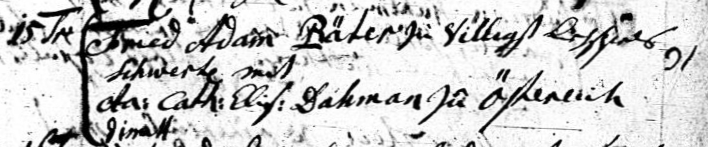 15 Tr Fried Adam Räter zu Villigst
Schwerte mit
An: Cath: Elis: Dahman zu Östereich